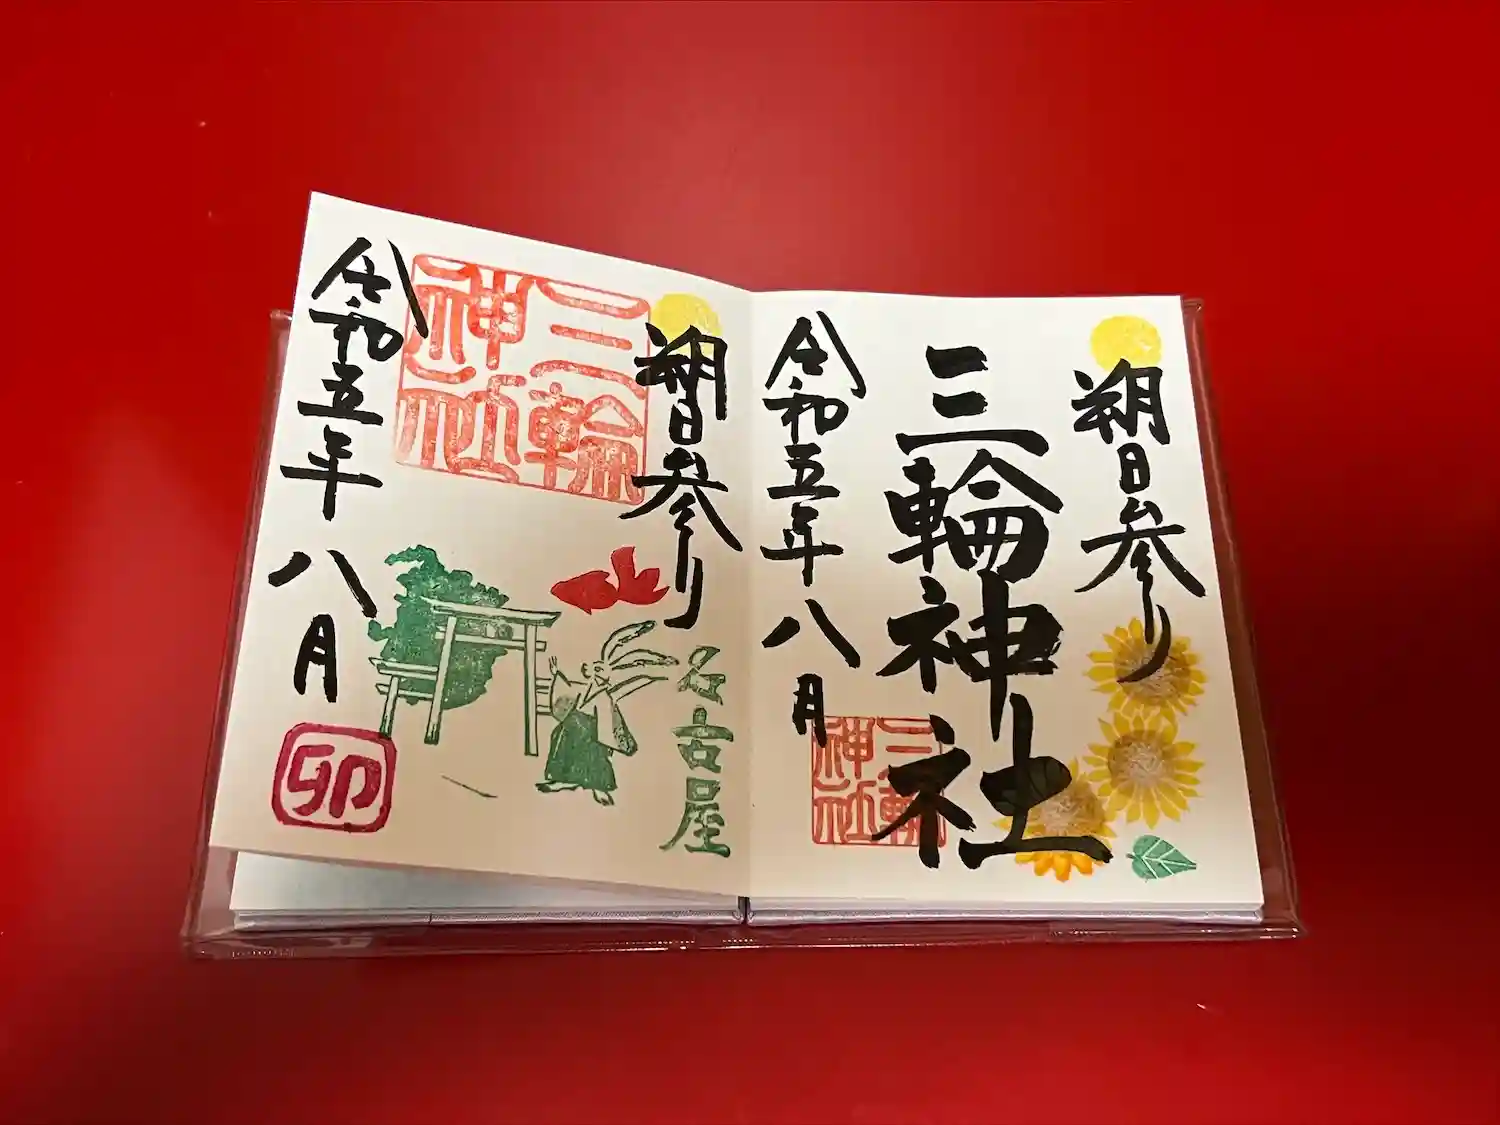 朔日参り
三輪神社
三輪神社
令和五年八月
朔日参り
名古屋
三輪神社
令和五年八月
卯